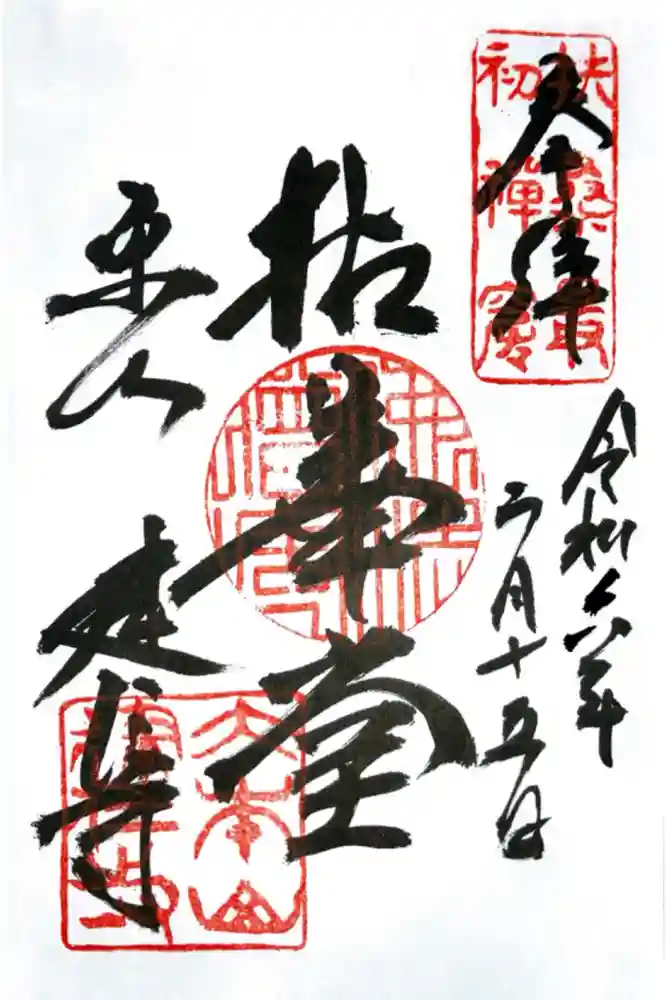 奉拝
扶桑最
初禪窟
令和六年
二月十五日
拈華堂
東山
建仁寺
大本山
建仁寺